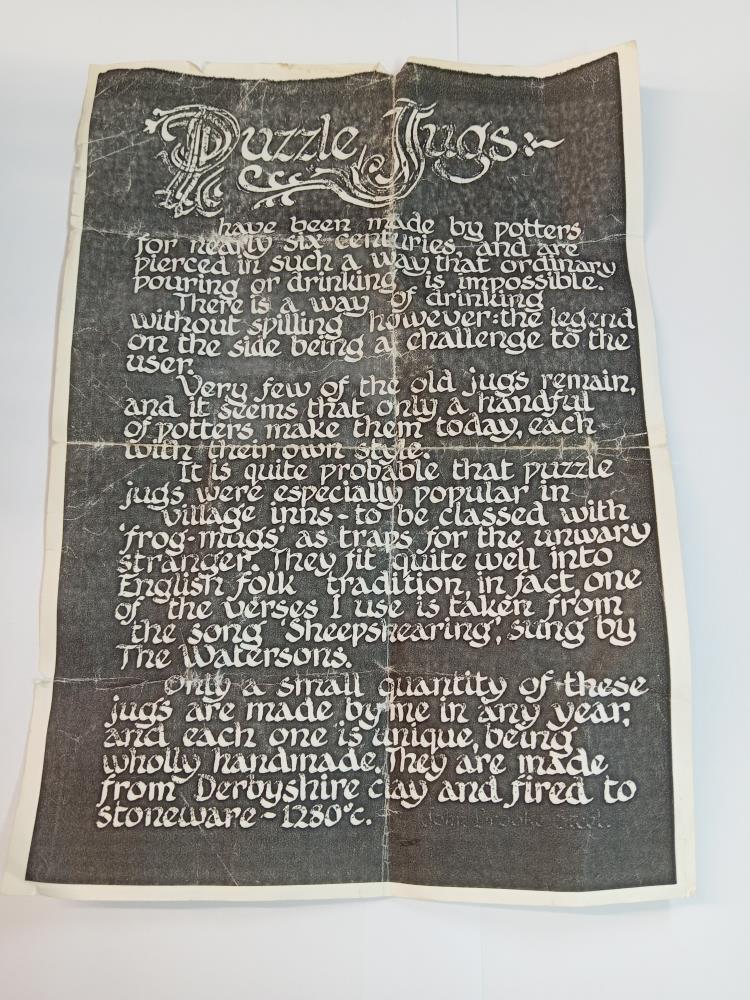 Puzzle Jugs:~
have been made by potters
for nearly six centuries, and are
pierced in such a way that ordinary
pouring or drinking is impossible.
There is a way of drinking
without spilling however: the legend
on the side being a challenge to the
user.
Very few of the old jugs remain,
and it seems that only a handful
of potters make them today, each
with their own style.
It is quite probable that puzzle
jugs were especially popular in
village inns - to be classed with
'frog-mugs' as traps for the unwary
stranger. They fit quite well into
English folk tradition, in fact, one
of the verses I use is taken from
the song 'Sheepshearing', sung by
The Watersons.
Only a small quantity of these
jugs are made by me in any year,
and each one is unique, being
wholly handmade. They are made
from Derbyshire clay and fired to
stoneware - 1280°c.
John Brooke